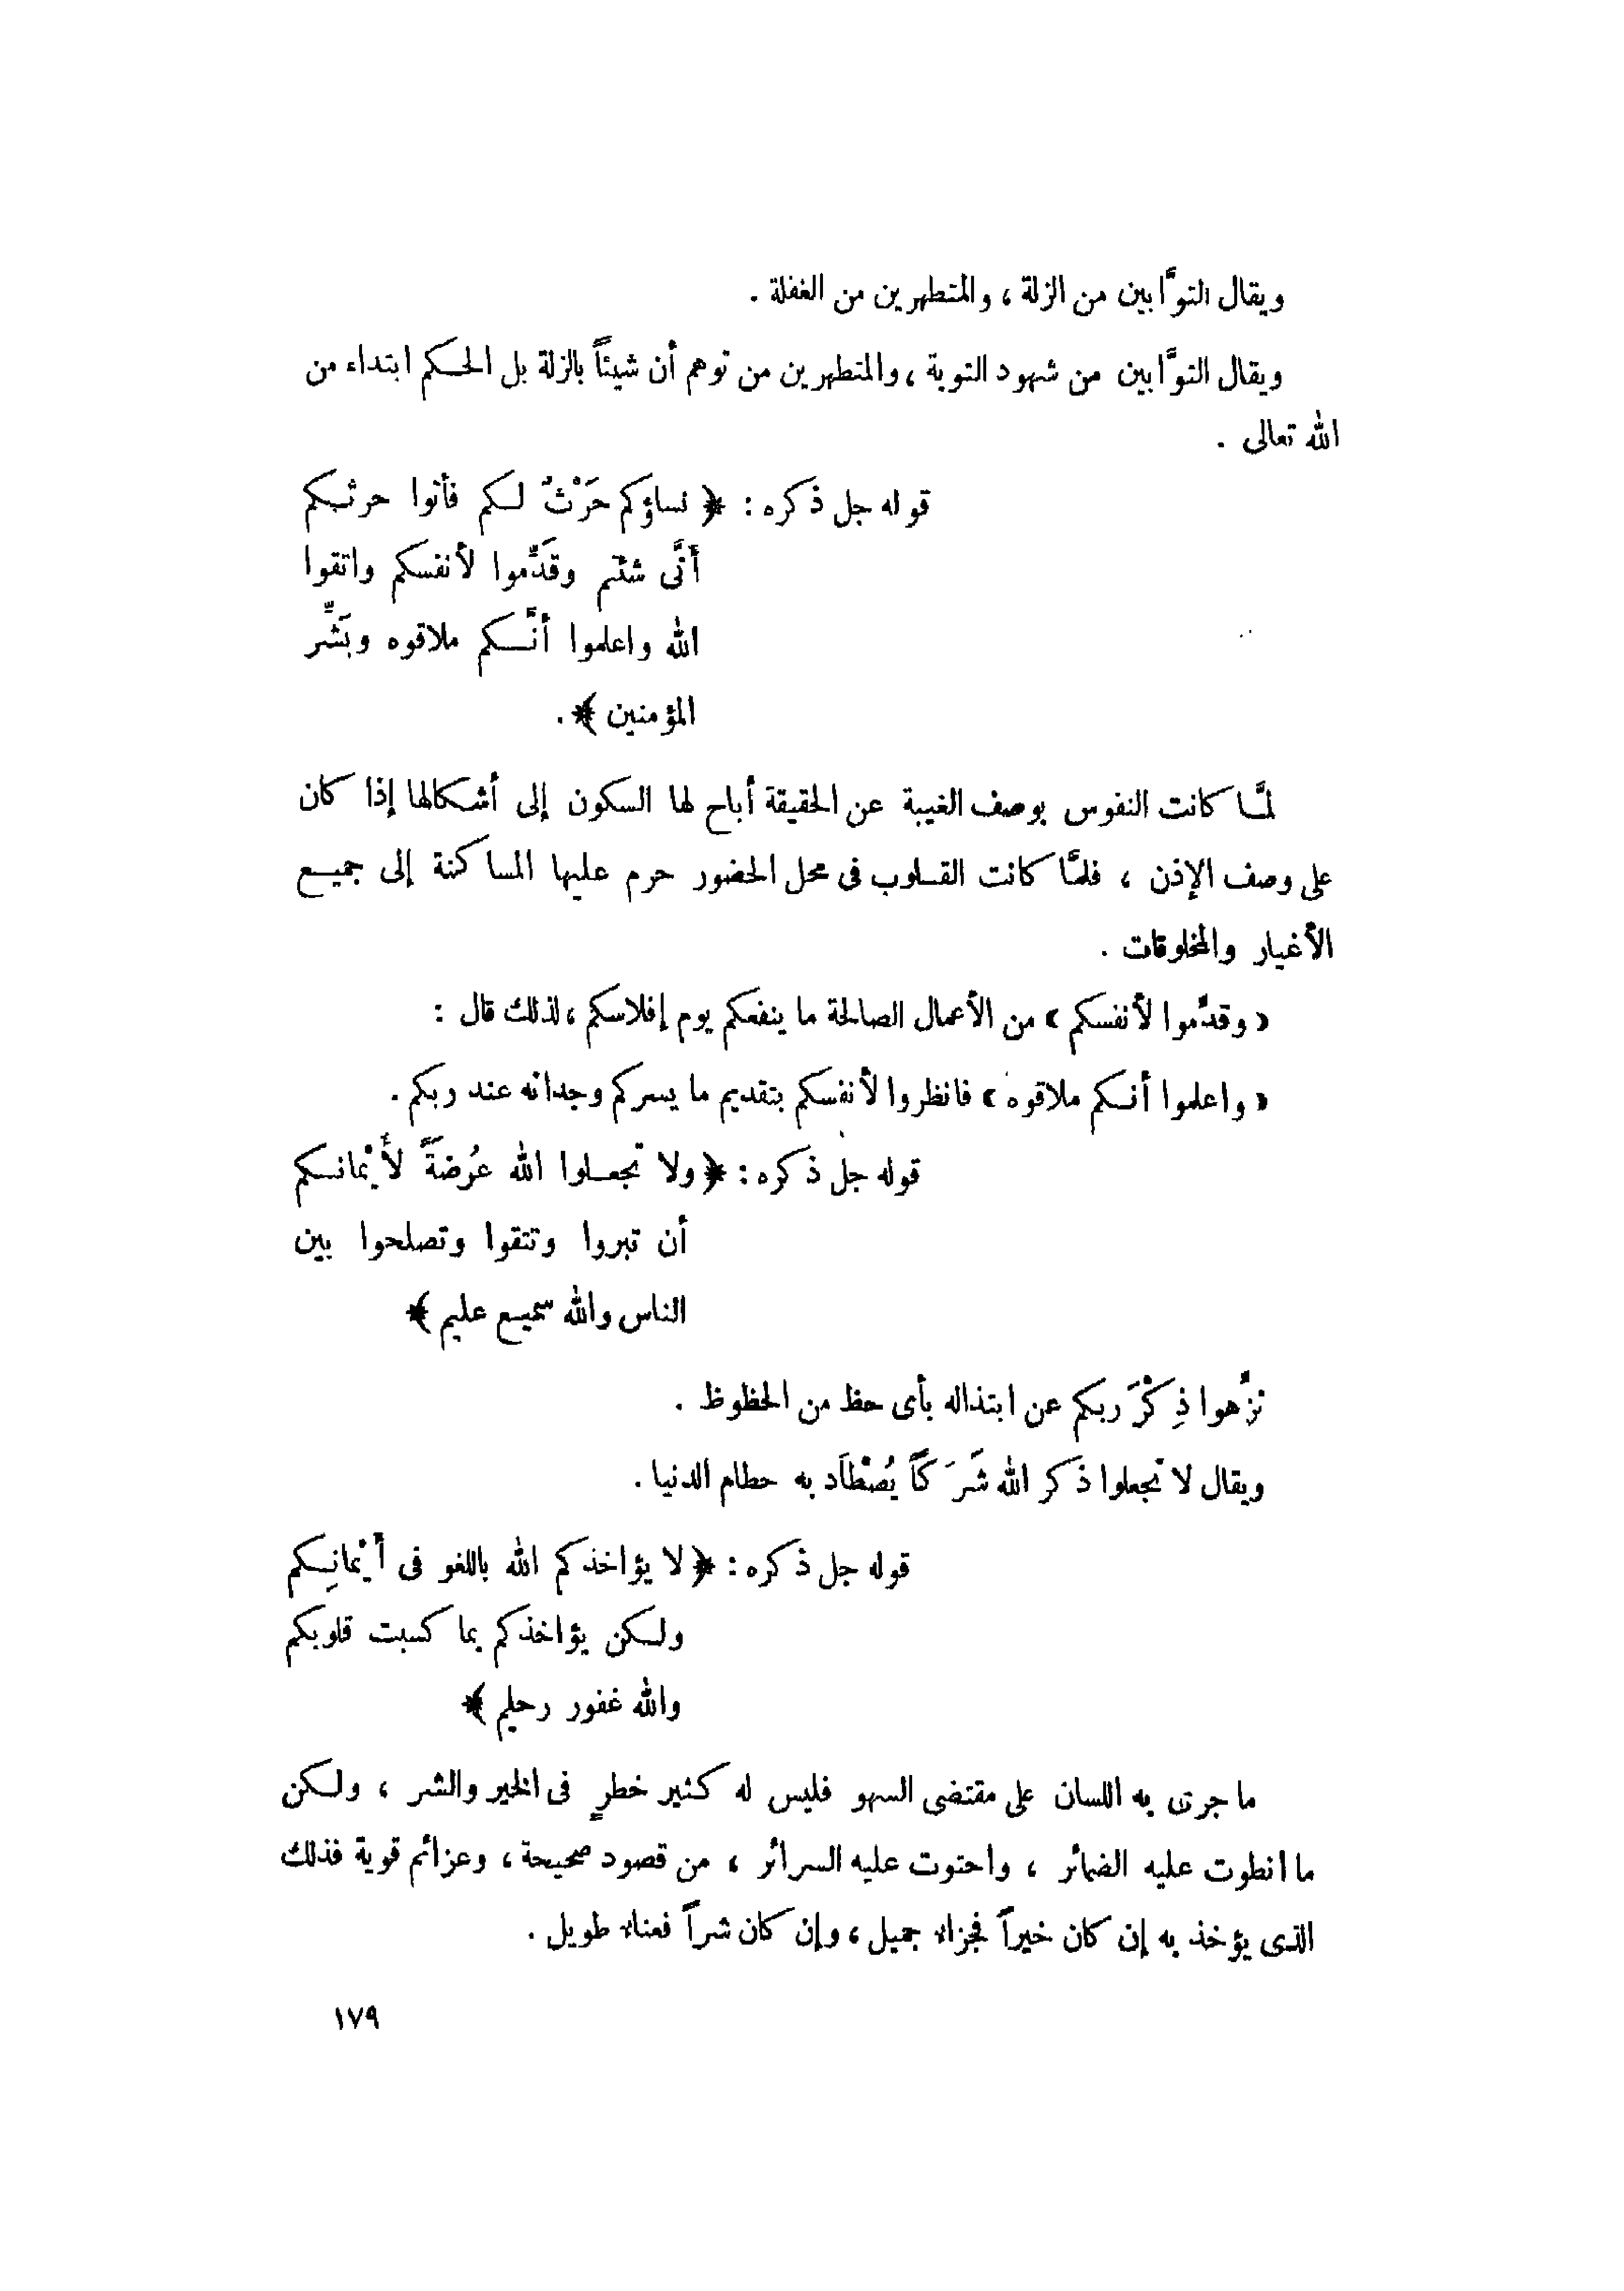 ويقال التوَّابين من الزلة ، والمتطهرين من الغفلة .
ويقال التوَّابين من شهود التوبة ، والمتطهرين من توهم أن شيئاً بالزلة بل الحكم ابتداء من
الله تعالى .
قوله جل ذكره : ﴿ نساؤكم حَرْثٌ لكم فأتوا حرثكم
أَنَّى شئتم وقَدِّموا لأنفسكم واتقوا
الله واعلموا أنَّكم ملاقوه وبَشِّر
المؤمنين ﴾ .
لمَّا كانت النفوس بوصف الغيبة عن الحقيقة أباح لها السكون إلى أشكالها إذا كان
على وصف الإذن ، فلمَّا كانت القلوب فى محل الحضور حرم عليها المساكنة إلى جميع
الأغيار والمخلوقات .
« وقدِّموا لأنفسكم » من الأعمال الصالحة ما ينفعكم يوم إفلاسكم ، لذلك قال :
« واعلموا أنكم ملاقوه » فانظروا لأنفسكم بتقديم ما يسركم وجدانه عند ربكم .
قوله جل ذكره : ﴿ ولا تجعلوا الله عُرضَةً لأَيْمانكم
أن تبروا وتتقوا وتصلحوا بين
الناس والله سميع عليم ﴾
نزِّهوا ذِكْرَ ربكم عن ابتذاله بأى حظ من الحظوظ .
ويقال لا تجعلوا ذكر الله شَرَكاً يُصْطَاد به حطام الدنيا .
قوله جل ذكره : ﴿ لا يؤاخذكم الله باللغو فى أَيْمانِكم
ولكن يؤاخذكم بما كسبت قلوبكم
والله غفور رحيم ﴾
ما جرى به اللسان على مقتضى السهو فليس له كثير خطرٍ فى الخير والشر ، ولكن
ما انطوت عليه الضمائر ، واحتوت عليه السرائر ، من قصود صحيحة ، وعزائم قوية فذلك
الذى يؤخذ به إن كان خيراً فجزاء جميل ، وإن كان شراً فعناء طويل .
١٧٩